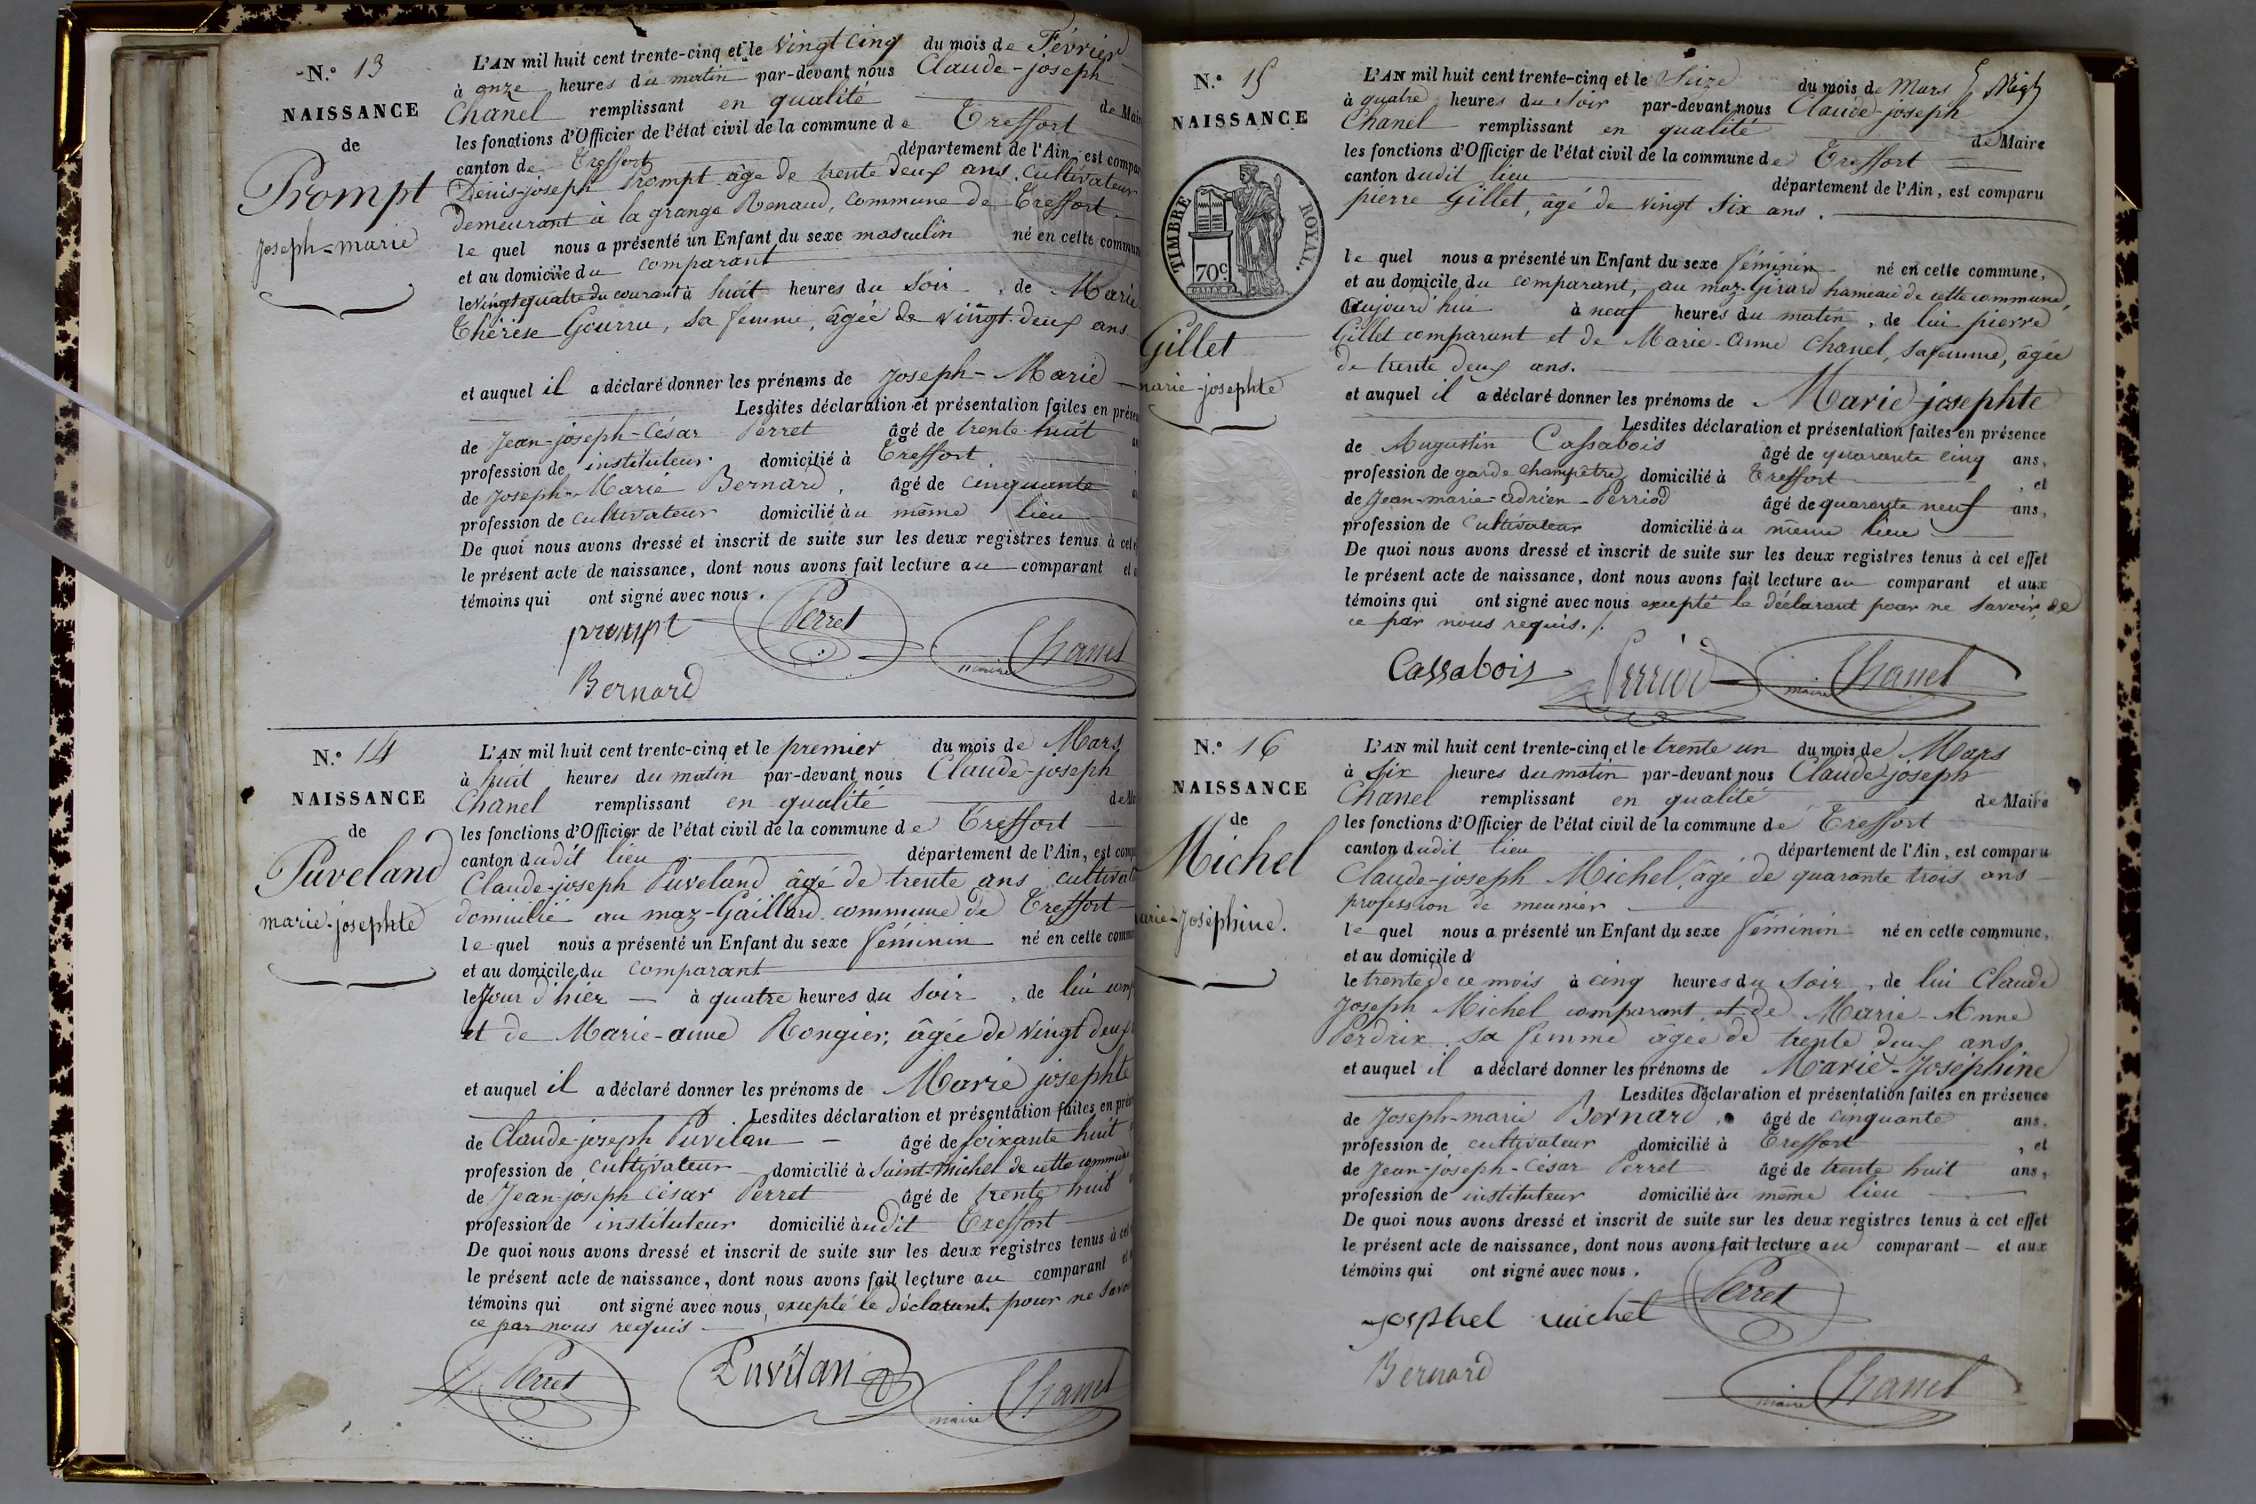 N.° 13
NAISSANCE
de
Prompt
joseph-marie
L'AN mil huit cent trente-cinq et le vingt cinq du mois de Février
à onze heures du matin par-devant nous Claude-joseph
Chanel remplissant en qualité de Mair
les fonctions d'Officier de l'état civil de la commune de Treffort
canton de Treffort département de l'Ain, est compar
Denis-joseph Prompt âgé de trente deux ans, Cultivateur
demeurant à la grange Renaud, commune de Treffort
le quel nous a présenté un Enfant du sexe masculin né en cette commun
et au domicile du comparant
le vingt quatre du courant à huit heures du soir, de Marie
Thérèse Gourru, sa femme, âgée de vingt-deux ans
et auquel il a déclaré donner les prénoms de Joseph-Marie
Lesdites déclaration et présentation faites en prése
de Jean-joseph-César Perret âgé de trente-huit
profession de instituteur domicilié à Treffort
de Joseph-Marie Bernard, âgé de cinquante
profession de cultivateur domicilié au même lieu
De quoi nous avons dressé et inscrit de suite sur les deux registres tenus à cet
le présent acte de naissance, dont nous avons fait lecture au comparant et
témoins qui ont signé avec nous.
prompt Perret
maire Chanel
Bernard
N.° 14
NAISSANCE
de
Puveland
marie-josephte
L'AN mil huit cent trente-cinq et le premier du mois de Mars
à huit heures du matin par-devant nous Claude-joseph
Chanel remplissant en qualité de
les fonctions d'Officier de l'état civil de la commune de Treffort
canton dudit lieu département de l'Ain, est comp
Claude-joseph Puveland âgé de trente ans cultivat
domicilié au maz-Gaillard commune de Treffort
le quel nous a présenté un Enfant du sexe féminin né en cette comm
et au domicile du comparant
le Jour d'hier à quatre heures du soir, de lui comp
et de Marie-anne Rongier, âgée de vingt deux
et auquel il a déclaré donner les prénoms de Marie josephte
Lesdites déclaration et présentation faites en prés
de Claude-joseph Puvilan âgé de soixante huit
profession de cultivateur domicilié à Saint-Michel de cette commune
de Jean-joseph César Perret âgé de trente huit
profession de instituteur domicilié audit Treffort
De quoi nous avons dressé et inscrit de suite sur les deux registres tenus à cet
le présent acte de naissance, dont nous avons fait lecture au comparant et
témoins qui ont signé avec nous, excepté le déclarant pour ne savoi
ce par nous requis
Perret Puvilan maire Chanel
N.° 15
NAISSANCE
TIMBRE ROYAL.
70c
Gillet
marie-josephte
L'AN mil huit cent trente-cinq et le Seize du mois de Mars
à quatre heures du Soir par-devant nous Claude-joseph
Chanel remplissant en qualité de Maire
les fonctions d'Officier de l'état civil de la commune de Treffort
canton dudit lieu département de l'Ain, est comparu
pierre Gillet, âgé de vingt six ans.
le quel nous a présenté un Enfant du sexe féminin né en cette commune,
et au domicile du comparant, au maz-Girard hameau de cette commune,
aujourd'hui à neuf heures du matin, de lui pierre
Gillet comparant et de Marie-anne Chanel, sa femme, âgée
de trente deux ans.
et auquel il a déclaré donner les prénoms de Marie josephte
Lesdites déclaration et présentation faites en présence
de Augustin Cassabois âgé de quarante cinq ans,
profession de garde champêtre domicilié à Treffort, et
de Jean-marie-adrien-Perriod âgé de quarante neuf ans,
profession de Cultivateur domicilié au même lieu
De quoi nous avons dressé et inscrit de suite sur les deux registres tenus à cet effet
le présent acte de naissance, dont nous avons fait lecture au comparant et aux
témoins qui ont signé avec nous excepté le déclarant pour ne savoir, de
ce par nous requis./.
Cassabois Perriod maire Chanel
N.° 16
NAISSANCE
de
Michel
arie-Joséphine.
L'AN mil huit cent trente-cinq et le trente un du mois de Mars
à Six heures du matin par-devant nous Claude-joseph
Chanel remplissant en qualité de Maire
les fonctions d'Officier de l'état civil de la commune de Treffort
canton dudit lieu département de l'Ain, est comparu
Claude-joseph Michel, âgé de quarante trois ans
profession de meunier
le quel nous a présenté un Enfant du sexe féminin né en cette commune,
et au domicile d
le trente de ce mois à cinq heures du soir, de lui Claude
Joseph Michel comparant et de Marie-Anne
Perdrix sa femme âgée de trente deux ans
et auquel il a déclaré donner les prénoms de Marie-Joséphine
Lesdites déclaration et présentation faites en présence
de Joseph-marie Bernard, âgé de cinquante ans,
profession de cultivateur domicilié à Treffort, et
de Jean-joseph-César Perret âgé de trente huit ans,
profession de instituteur domicilié au même lieu
De quoi nous avons dressé et inscrit de suite sur les deux registres tenus à cet effet
le présent acte de naissance, dont nous avons fait lecture au comparant et aux
témoins qui ont signé avec nous.
josphel michel Perret
Bernard maire Chanel